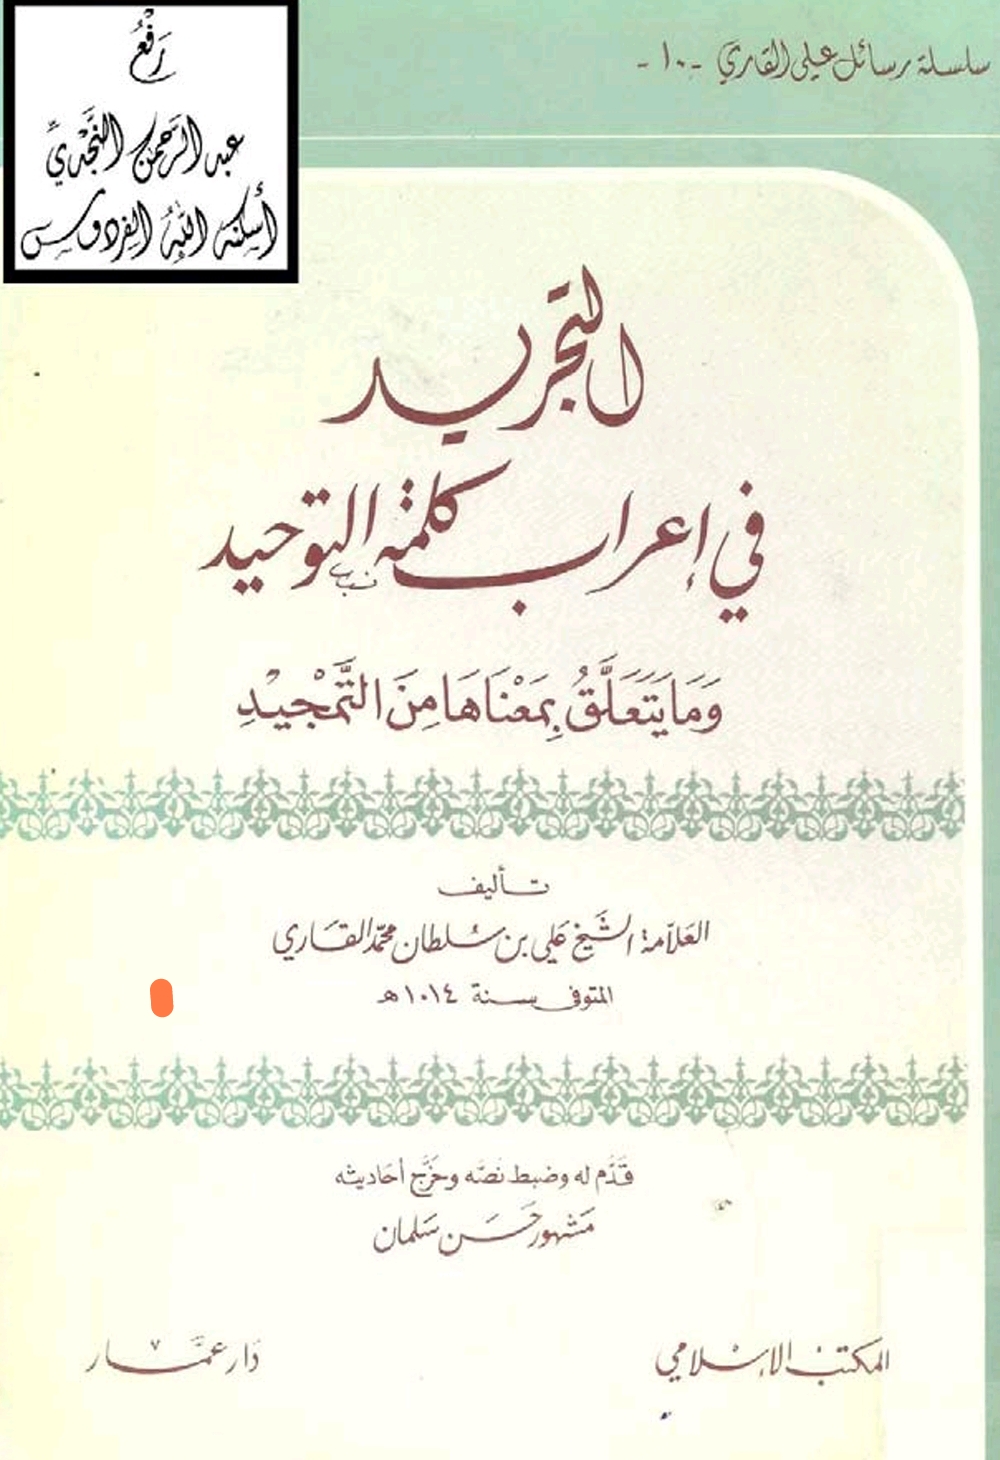 سلسلة رسائل علي القاري -١٠-
رَفْعُ
عبد الرَّحمن النَّجْديِّ
أسكنه اللهُ الفردوس
التجريد
في إعراب كلمة التوحيد
وَمَا يَتَعَلَّقُ بِمَعْنَاهَا مِنَ التَّمْجِيْدِ
تأليف
العَلاّمة الشَّيخ عَلي بن سُلطان محمّد القَاري
المتوفى سنة ١٠١٤هـ
قَدَّم له وضبط نَصَّه وخَرَّج أحَاديثه
مَشهور حَسَن سَلمان
المكتب الإسْلامي
دَار عمَّار